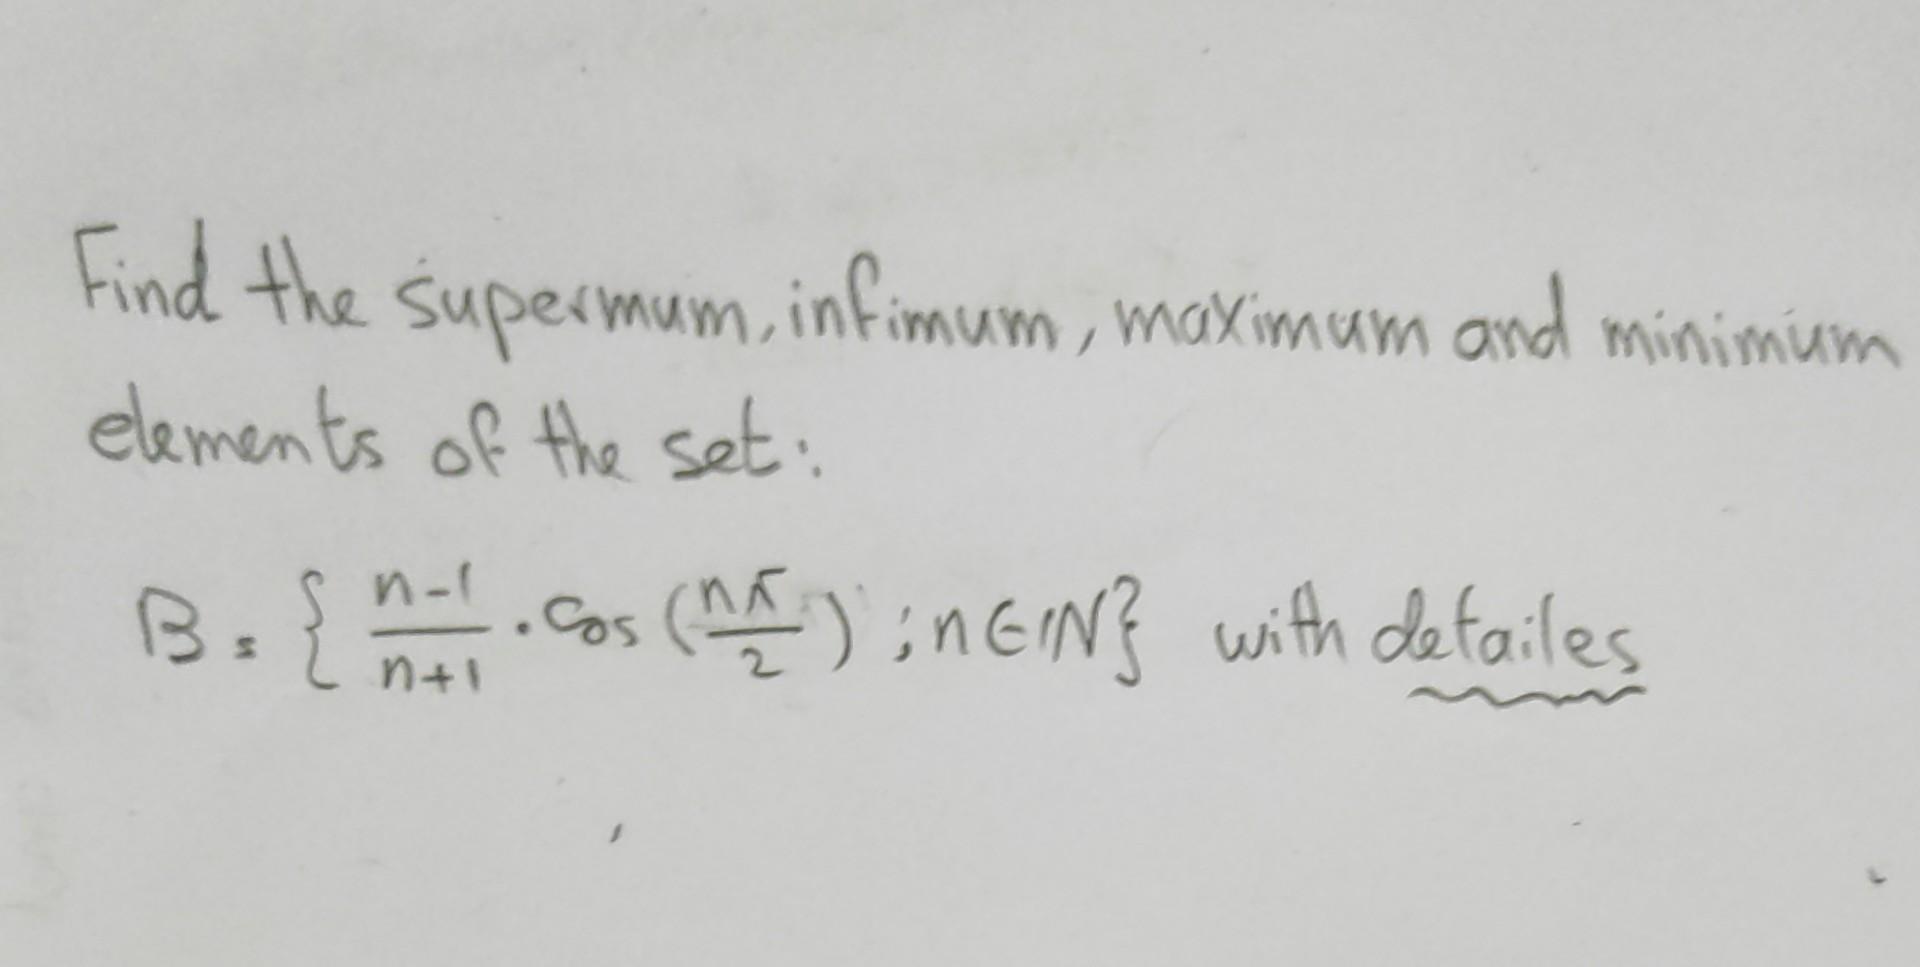 Find the supermum, infimum, maximum and minimum
elements of the set:
B = { n-1/n+1 . Cos (nπ/2) ; n ∈ IN} with detailes